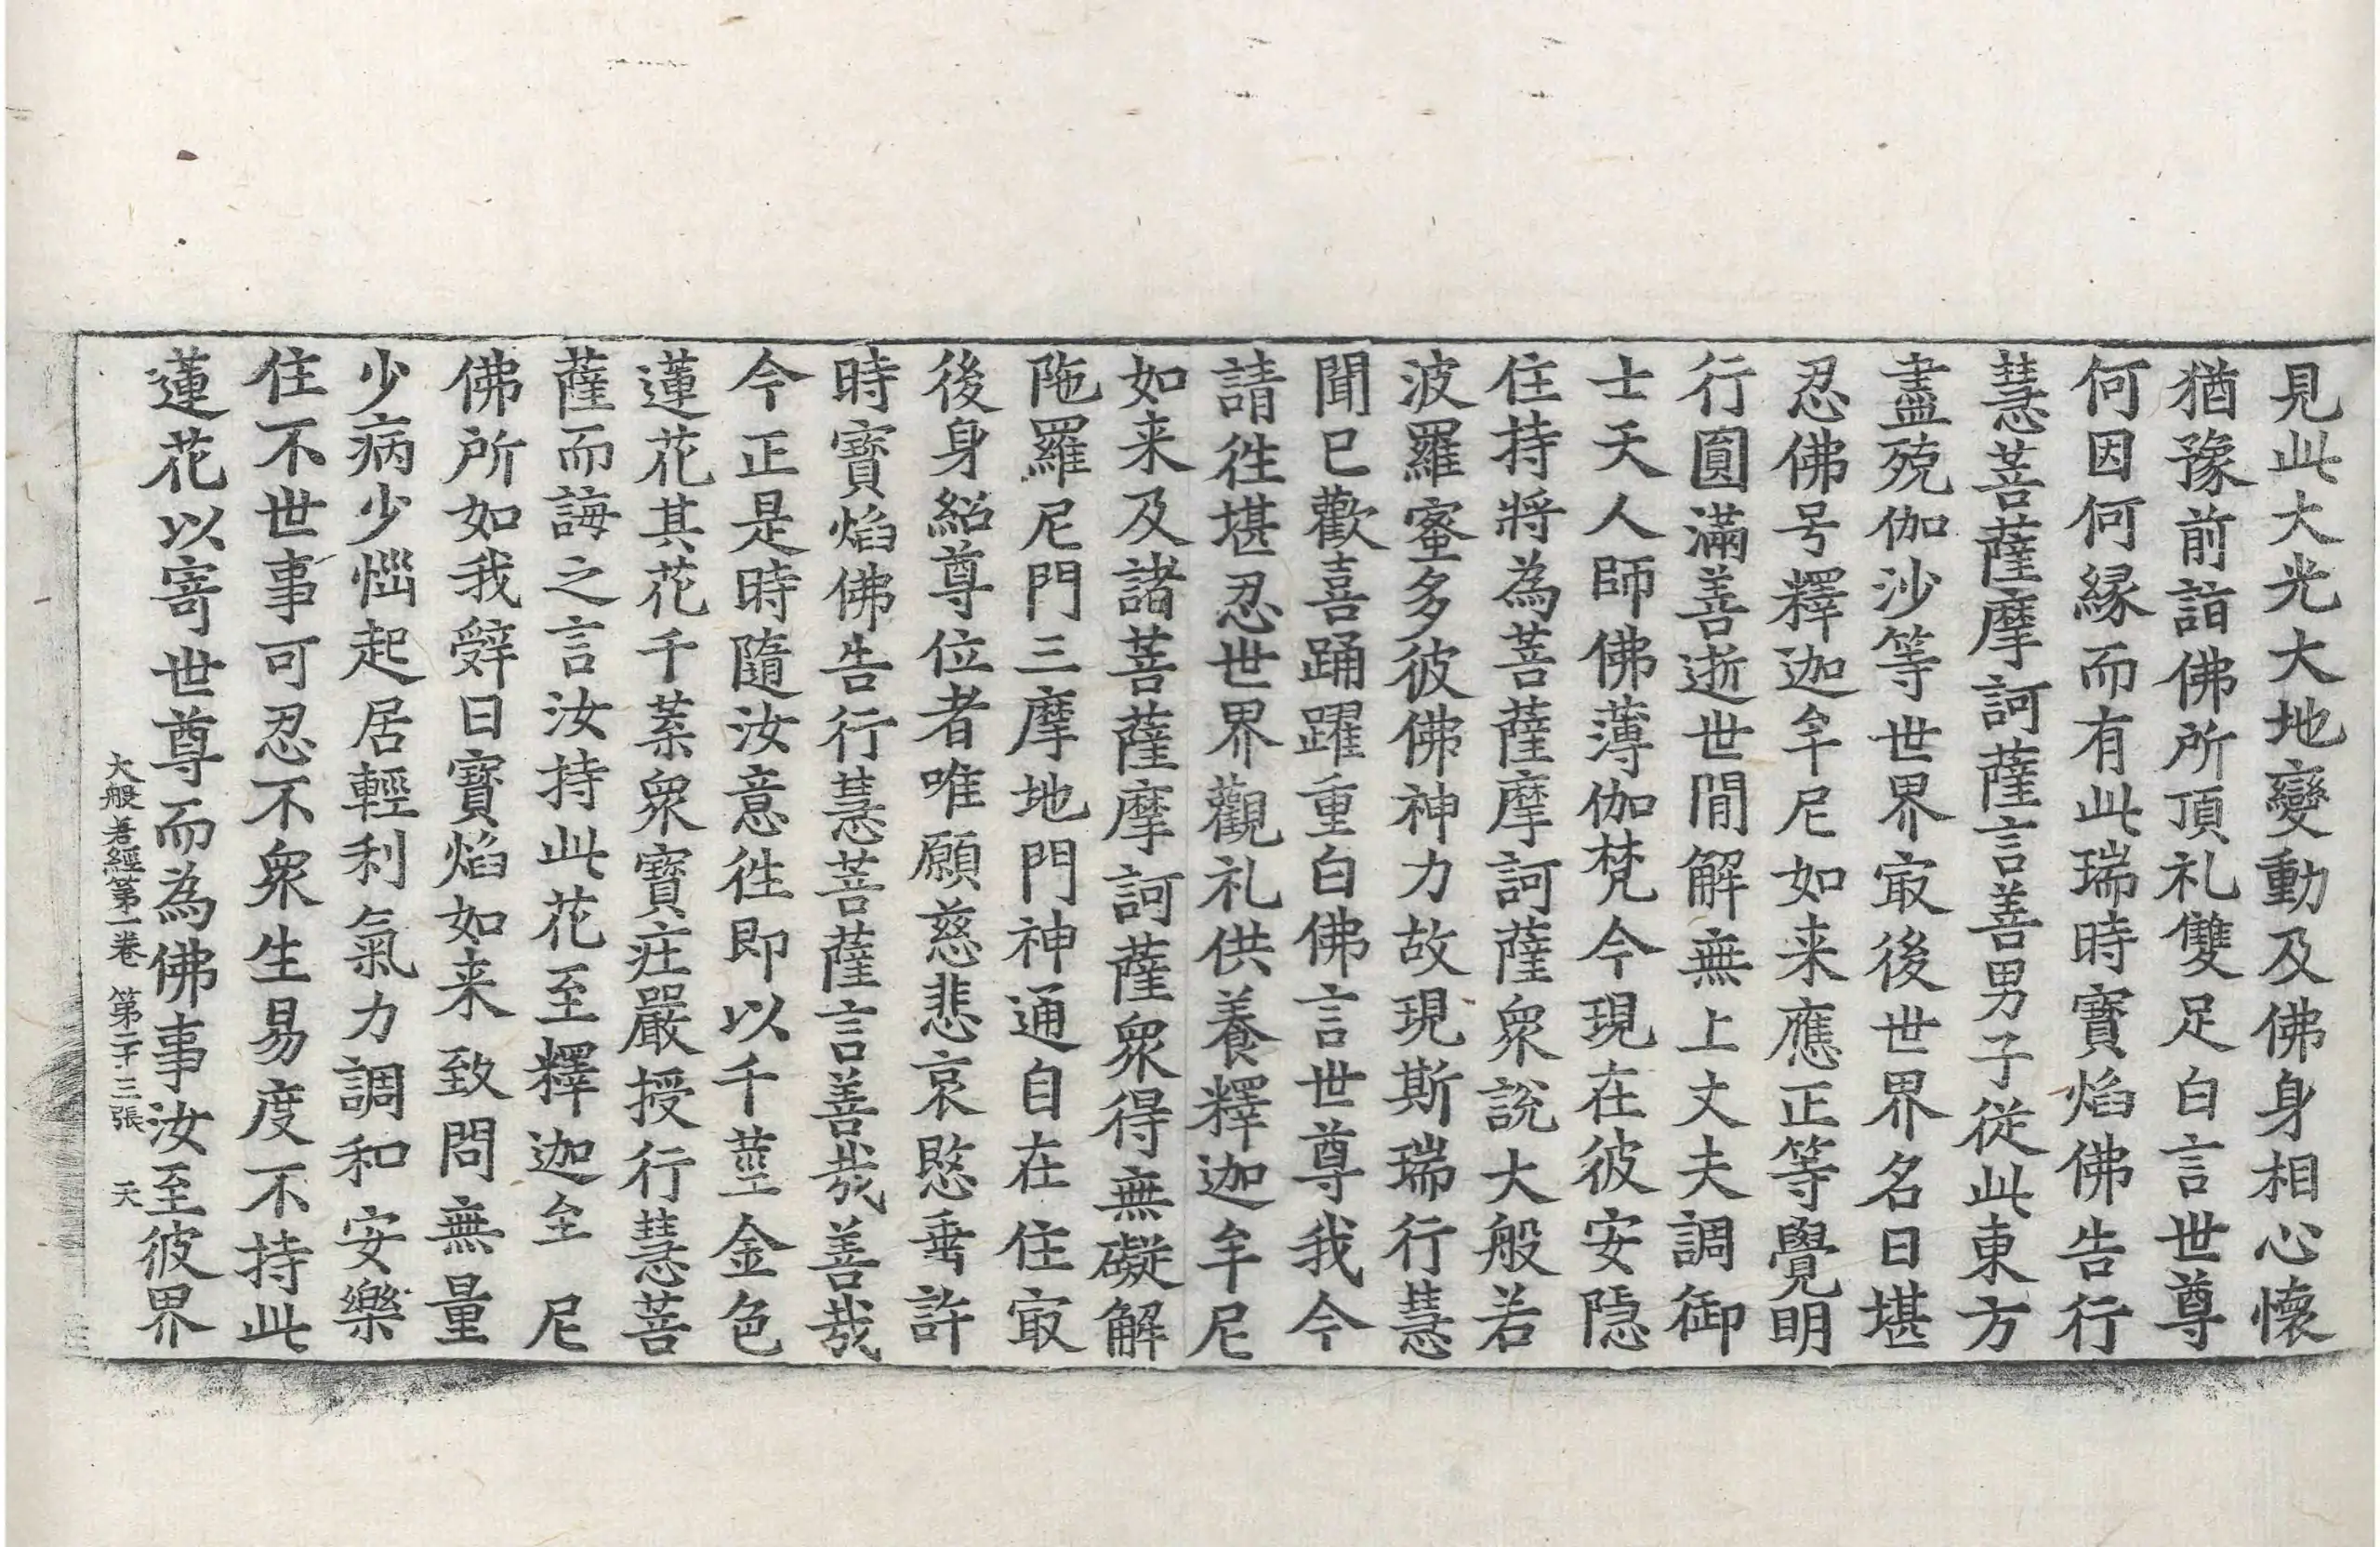 見此大光大地變動及佛身相心懷
猶豫前詣佛所頂礼雙足白言世尊
何因何緣而有此瑞時寶焰佛告行
慧菩薩摩訶薩言善男子從此東方
盡殑伽沙等世界㝡後世界名曰堪
忍佛号釋迦牟尼如来應正等覺明
行圓滿善逝世閒解無上丈夫調御
士天人師佛薄伽梵今現在彼安隱
住持將為菩薩摩訶薩衆說大般若
波羅蜜多彼佛神力故現斯瑞行慧
聞已歡喜踊躍重白佛言世尊我今
請徃堪忍世界觀礼供養釋迦牟尼
如来及諸菩薩摩訶薩衆得無礙解
陁羅尼門三摩地門神通自在住㝡
後身紹尊位者唯願慈悲哀愍垂許
時寶焰佛告行慧菩薩言善哉善哉
今正是時隨汝意徃即以千莖金色
蓮花其花千葉衆寶莊嚴授行慧菩
薩而誨之言汝持此花至釋迦牟尼
佛所如我辭曰寶焰如来致問無量
少病少惱起居輕利氣力調和安樂
住不世事可忍不衆生易度不持此
蓮花以寄世尊而為佛事汝至彼界
大般若經第一卷 第二十三張 天